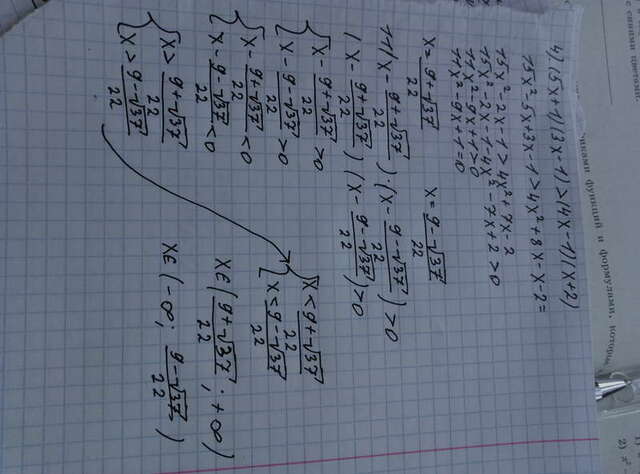 4) (5x+1)(3x-1)>(4x-1)(x+2)
15x²-5x+3x-1>4x²+8x-x-2=
15x²-2x-1>4x²+7x-2
15x²-2x-1-4x²-7x+2>0
11x²-9x+1>0
11x²-9x+1=0
x=9+√37/22 x=9-√37/22
11(x-9+√37/22)(x-9-√37/22)>0
(x-9+√37/22)(x-9-√37/22)>0
{x-9+√37/22>0
{x-9-√37/22>0
{x-9+√37/22<0
{x-9-√37/22<0
{x>9+√37/22
{x>9-√37/22
{x<9+√37/22
{x<9-√37/22
x∈(9+√37/22;+∞)
x∈(-∞;9-√37/22)
функций и формулами, которые
1)
2)